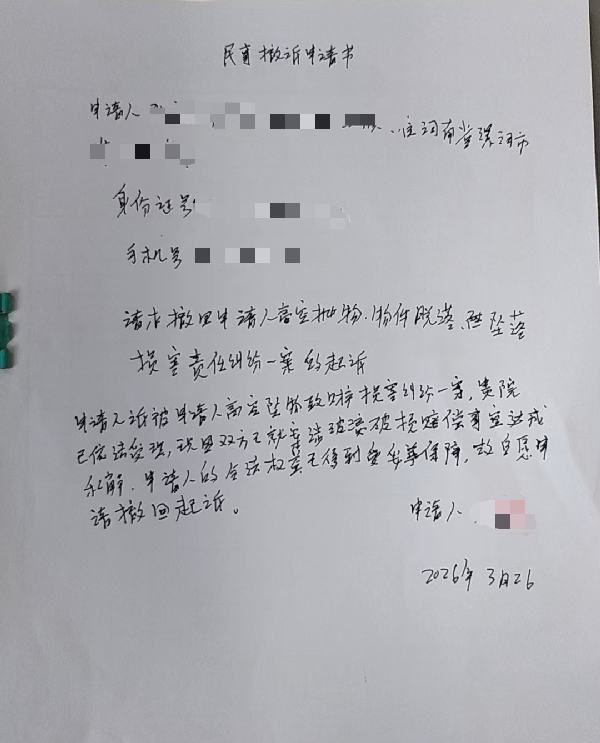 民事撤诉申请书
申请人
住河南省漯河市
身份证号
手机号
请求撤回申请人高空抛物、物件脱落、坠落
损害责任纠纷一案的起诉
申请人诉被申请人高空坠物致财产损害纠纷一案,贵院
已依法受理,现因双方已就车漆玻璃破损赔偿事宜达成
和解,申请人的合法权益已得到妥善保障,故自愿申
请撤回起诉。
申请人
2026年3月26